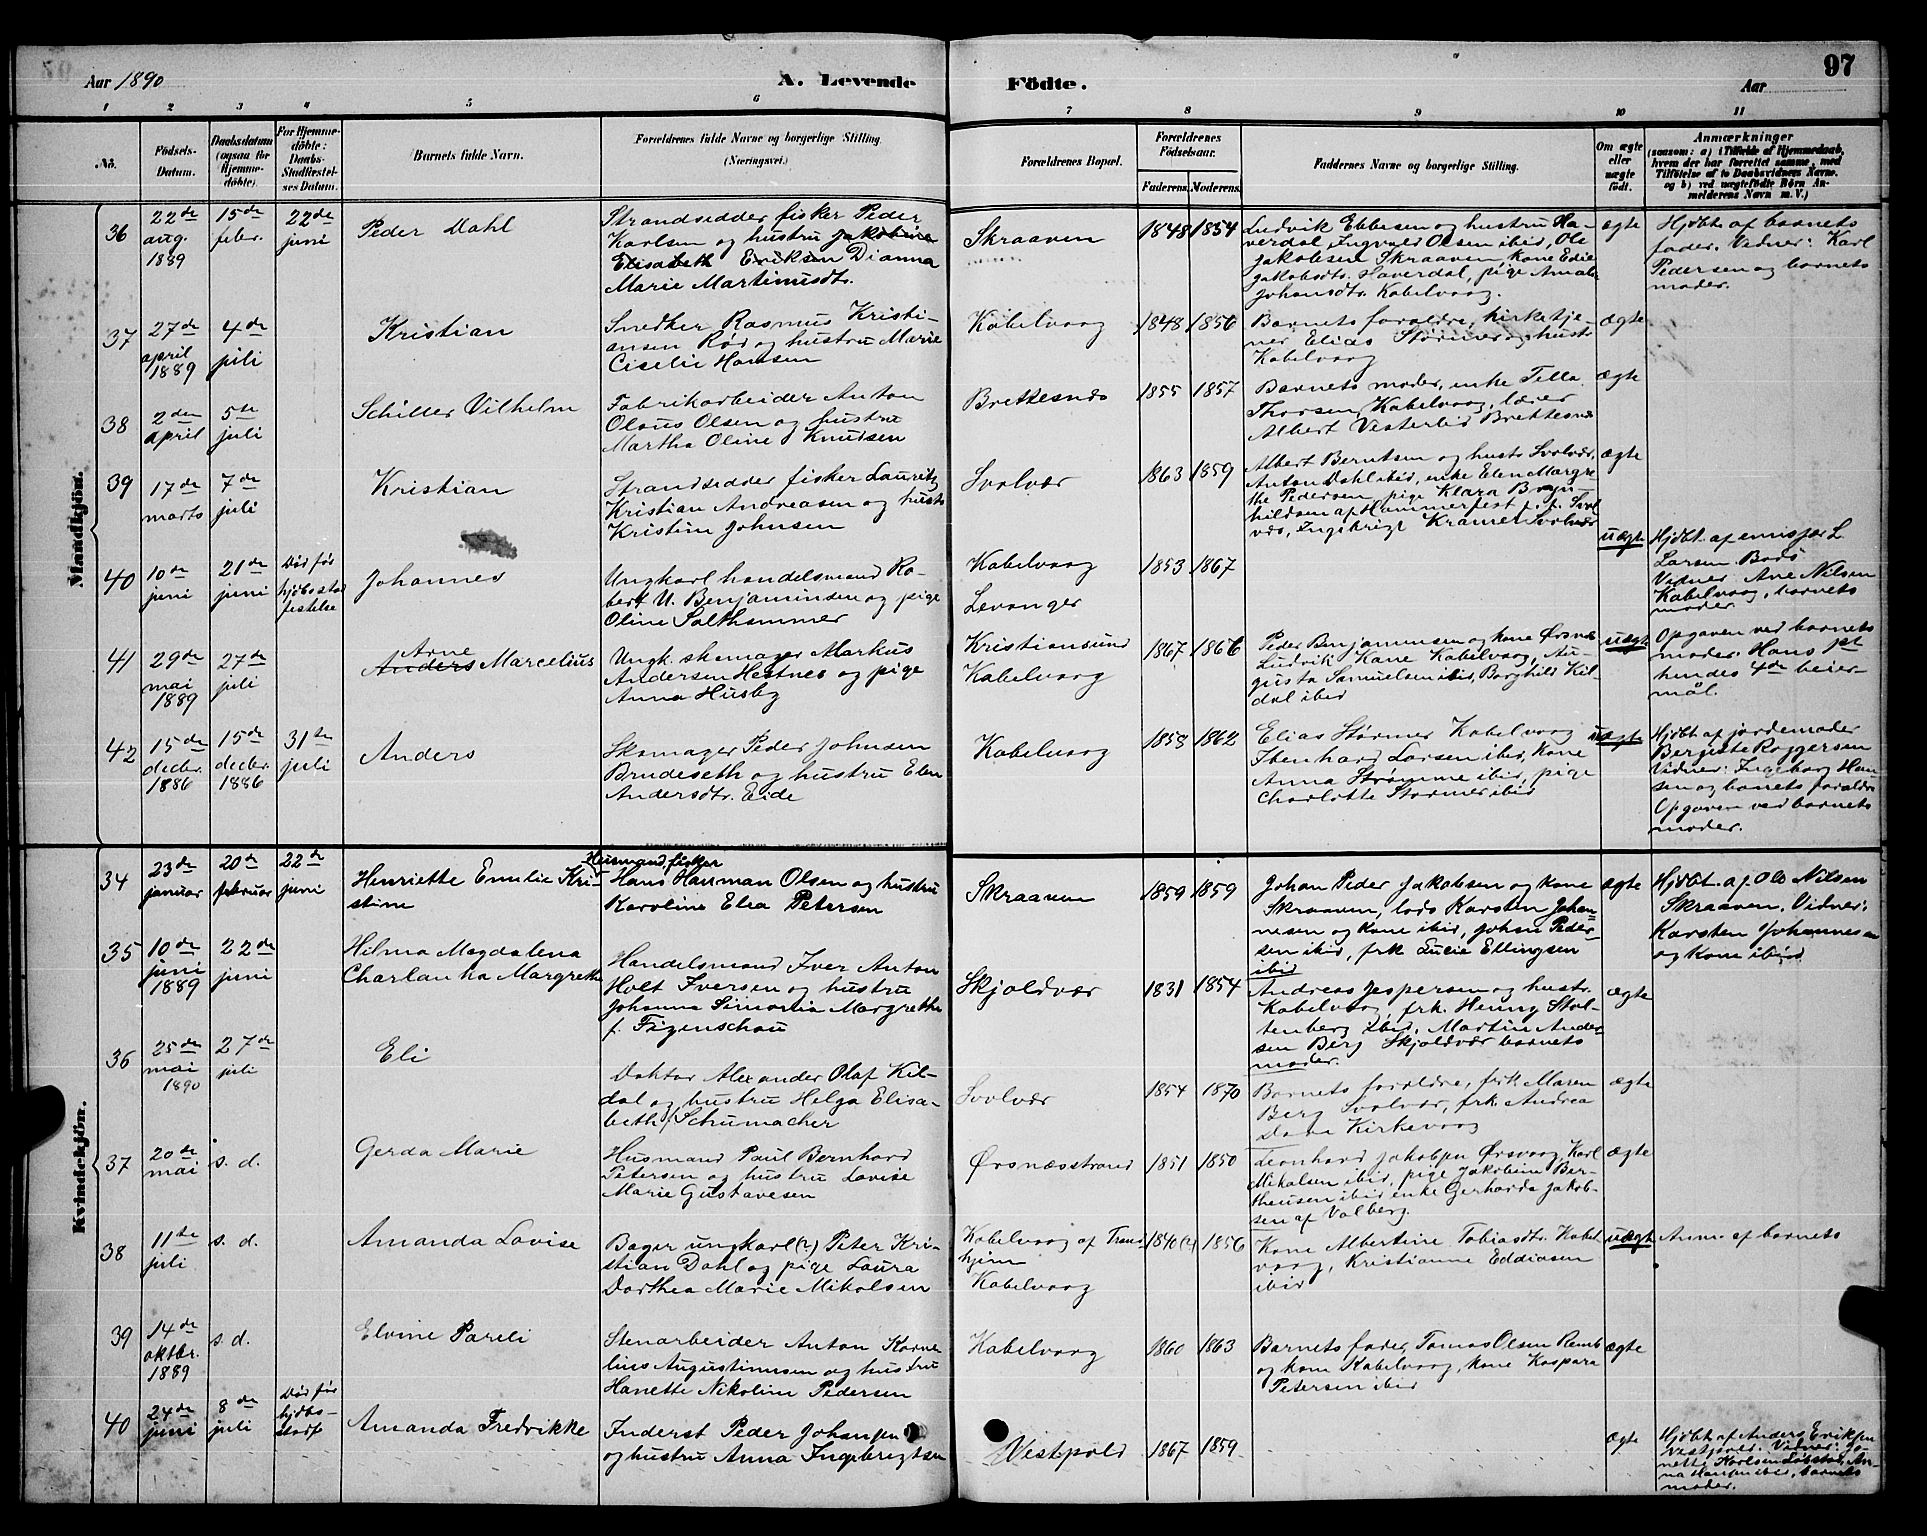 Aar 1890
A. Levende
Födte.
Aar
97
1 2 3 4 5 6 7 8 9 10 11
No.
Födsels-
Datum.
Daabsdatum
(ogsaa for
Hjemme-
döbte).
For Hjemme-
döbte:
Daabs-
Stadfæstel-
ses Datum.
Barnets fulde Navn.
Forældrenes fulde Navne og borgerlige Stilling.
(Næringsvei.)
Forældrenes Bopæl.
Forældrenes
Födselsaar.
Faderens. Moderens.
Faddernes Navne og borgerlige Stilling.
Om ægte
eller
uægte
födt.
Anmærkninger
(saasom: a) i Tilfælde af Hjemmedaab,
hvem der har forrettet samme, med
Tilföielse af to Daabsvidners Navne,
og b) ved uægtefödte Börn An-
melderens Navn m. V.)
Mandkjön.
36
22de
aug.
1889
15de
febr.
22de
juni
Peder Dahl
Strandsidder fisker Peder
Karlsen og hustru Jakobine
Elisabeth Eriksen Dianna
Marie Martinusdtr.
Skraaven
1848 1854
Ludvik Ebbesen og hustru Ha-
verdal, Ingvald Olsen ibid, Ole
Jakobsen Skraaven, Kone Edie
Jakobsdtr. Haverdal, pige Amalie
Johansdtr. Kabelvaag.
ægte
Hjdbt af barnets
fader. Vidner: Karl
Pedersen og barnets
moder.
37
27de
april
1889
4de
juli
Kristian
Snedker Rasmus Kristi-
ansen Rød og hustru Marie
Ciselie Hansen
Kabelvaag
1848 1856
Barnets forældre, kirketje-
ner Elias Størmer og hustr.
Kabelvaag
ægte
38
2den
april
5te
juli
Schiller Vilhelm
Fabrikarbeider Anton
Olaus Olsen og hustru
Martha Oline Knudsen
Brettesnæs
1855 1857
Barnets moder, enke Tella
Thorsen, Kabelvaag, lærer
Albert Vesterlid Brettesnæs
ægte
39
17de
marts
7de
juli
Kristian
Strandsidder fisker Lauritz
Kristian Andreasen og hustr
Kristine Johnsen
Svolvær
1863 1859
Albert Berntsen og hustr Svolvær,
Anton Dahl ibid, enke Elen Margre-
the Pedersen, pige Klara Bryn-
hildsen af Hammerfest p. t. Svol
vær, Ingebrigt Kramer Svolvær
ægte
40
10de
juni
21de
juni
Død før
hjdbs stad
festelse
Johannes
Ungkarl handelsmand Ro-
bert U. Benjaminsen og pige
Oline Salthammer
Kabelvaag
Levanger
1853 1867
uægte
Hjdbt. af emissær L.
Larsen Bodø
Vidner. Ane Nilsen
Kabelvaag, barnets
moder.
41
29de
mai
1889
27de
juli
Arne
Anders Marcelius
Ungk. skomager Markus
Andersen Hestnes og pige
Anna Husby
Kristiansund
Kabelvaag
1867 1866
Peder Benjaminsen og kone Ørsnæs
Ludvik Kane Kabelvaag, Au-
gusta Samuelsen ibid, Borghild Kil-
dal ibid
uægte
Opgaven ved barnets
moder. Hans 1st
hendes 4de leier-
mål.
42
15de
decbr.
1886
15de
decbr.
1886
31te
juli
Anders
Skomager Peder Johnsen
Brudeseth og hustru Elen
Andersdtr. Eide
Kabelvaag
1858 1862
Elias Størmer Kabelvaag
Ibenhard Larsen ibid, Kone
Anna Strømme ibid, pige
Charlotte Størmer ibid
uægte
Hjdbt af jordemoder
Bergitte Roggersen
Vidner: Ingeborg Han
sen og barnets forældre
Opgaven ved barnets
moder.
Kvindekjön.
34
23de
januar
20de
februar
22de
juni
Henriette Emilie Kri-
stine
Husmand, fisker
Hans Hauman Olsen og hustru
Karoline Elea Petersen
Skraaven
1859 1859
Johan Peder Jakobsen og kone
Skraaven, lods Karsten Johan-
nesen og kone ibid, Johan Peder-
sen ibid, frk Lucie Ellingsen
ibid
ægte
Hjdbt. af Ole Nilsen
Skraaven. Vidner:
Karsten Johannesen
og Kone ibid
35
10de
juni
1889
22de
juni
Hilma Magdalena
Charlantha Margrethe
Handelsmand Iver Anton
Holt Iversen og hustru
Johanna Margrethe
f. Figenschau
Skjoldvær
1831 1854
Andreas Jespersen og hustr.
Kabelvaag, frk. Henny Stol-
tenberg ibid, Martin Ander-
sen Berg Skjoldvær barnets
moder.
ægte
36
25de
mai
1890
27de
juli
Eli
Doktor Alexander Olaf Kil-
dal og hustru Helga Elisa-
beth f. Schumacher
Svolvær
1854 1870
Barnets forældre, frk Maren
Berg Svolvær, frk. Andrea
Kirkevaag
ægte
37
20de
mai
s. d.
Gerda Marie
Husmand Paul Bernhard
Petersen og hustru Lovise
Marie Gustavesen
Ørsnæsstrand
1851 1850
Leonhard Jakobsen Ørsvaag, Karl
Mikalsen ibid, pige Jakobine Ber-
theusen ibid enke Gerharda Jakob-
sen af Valberg.
ægte
38
11te
juli
s. d.
Amanda Lovise
Bager ungkarl (?) Peter Kri-
stian Dahl og pige Laura
Dorthea Marie Mikalsen
Kabelvaag af Trond
hjem
Kabelvaag
1840 (?) 1856
Kone Albertine Tobiasdtr. Kabel
vaag, Kristianne Eddiasen
ibid
uægt
Anm. af barnets
39
14de
oktbr.
1889
s. d.
Elvine Pareli
Stenarbeider Anton Korne-
lius Augustinusen og hustru
Hanette Nikoline Pedersen
Kabelvaag
1860 1863
Barnets fader, Tomas Olsen Remb
og kone Kabelvaag, kone Kaspara
Petersen ibid
ægte
40
24de
juni
8de
juli
Død før
hjdbs-
stadf
Amanda Fredrikke
Inderst Peder Johansen
og hustru Anna Ingebrigtsen
Vestpold
1867 1859
ægte
Hjdbt af Anders Eriksen
Vestpold. Vidner: Jo-
nette Karlsen ibid, An-
na Hansen ibid, barnets
moder.